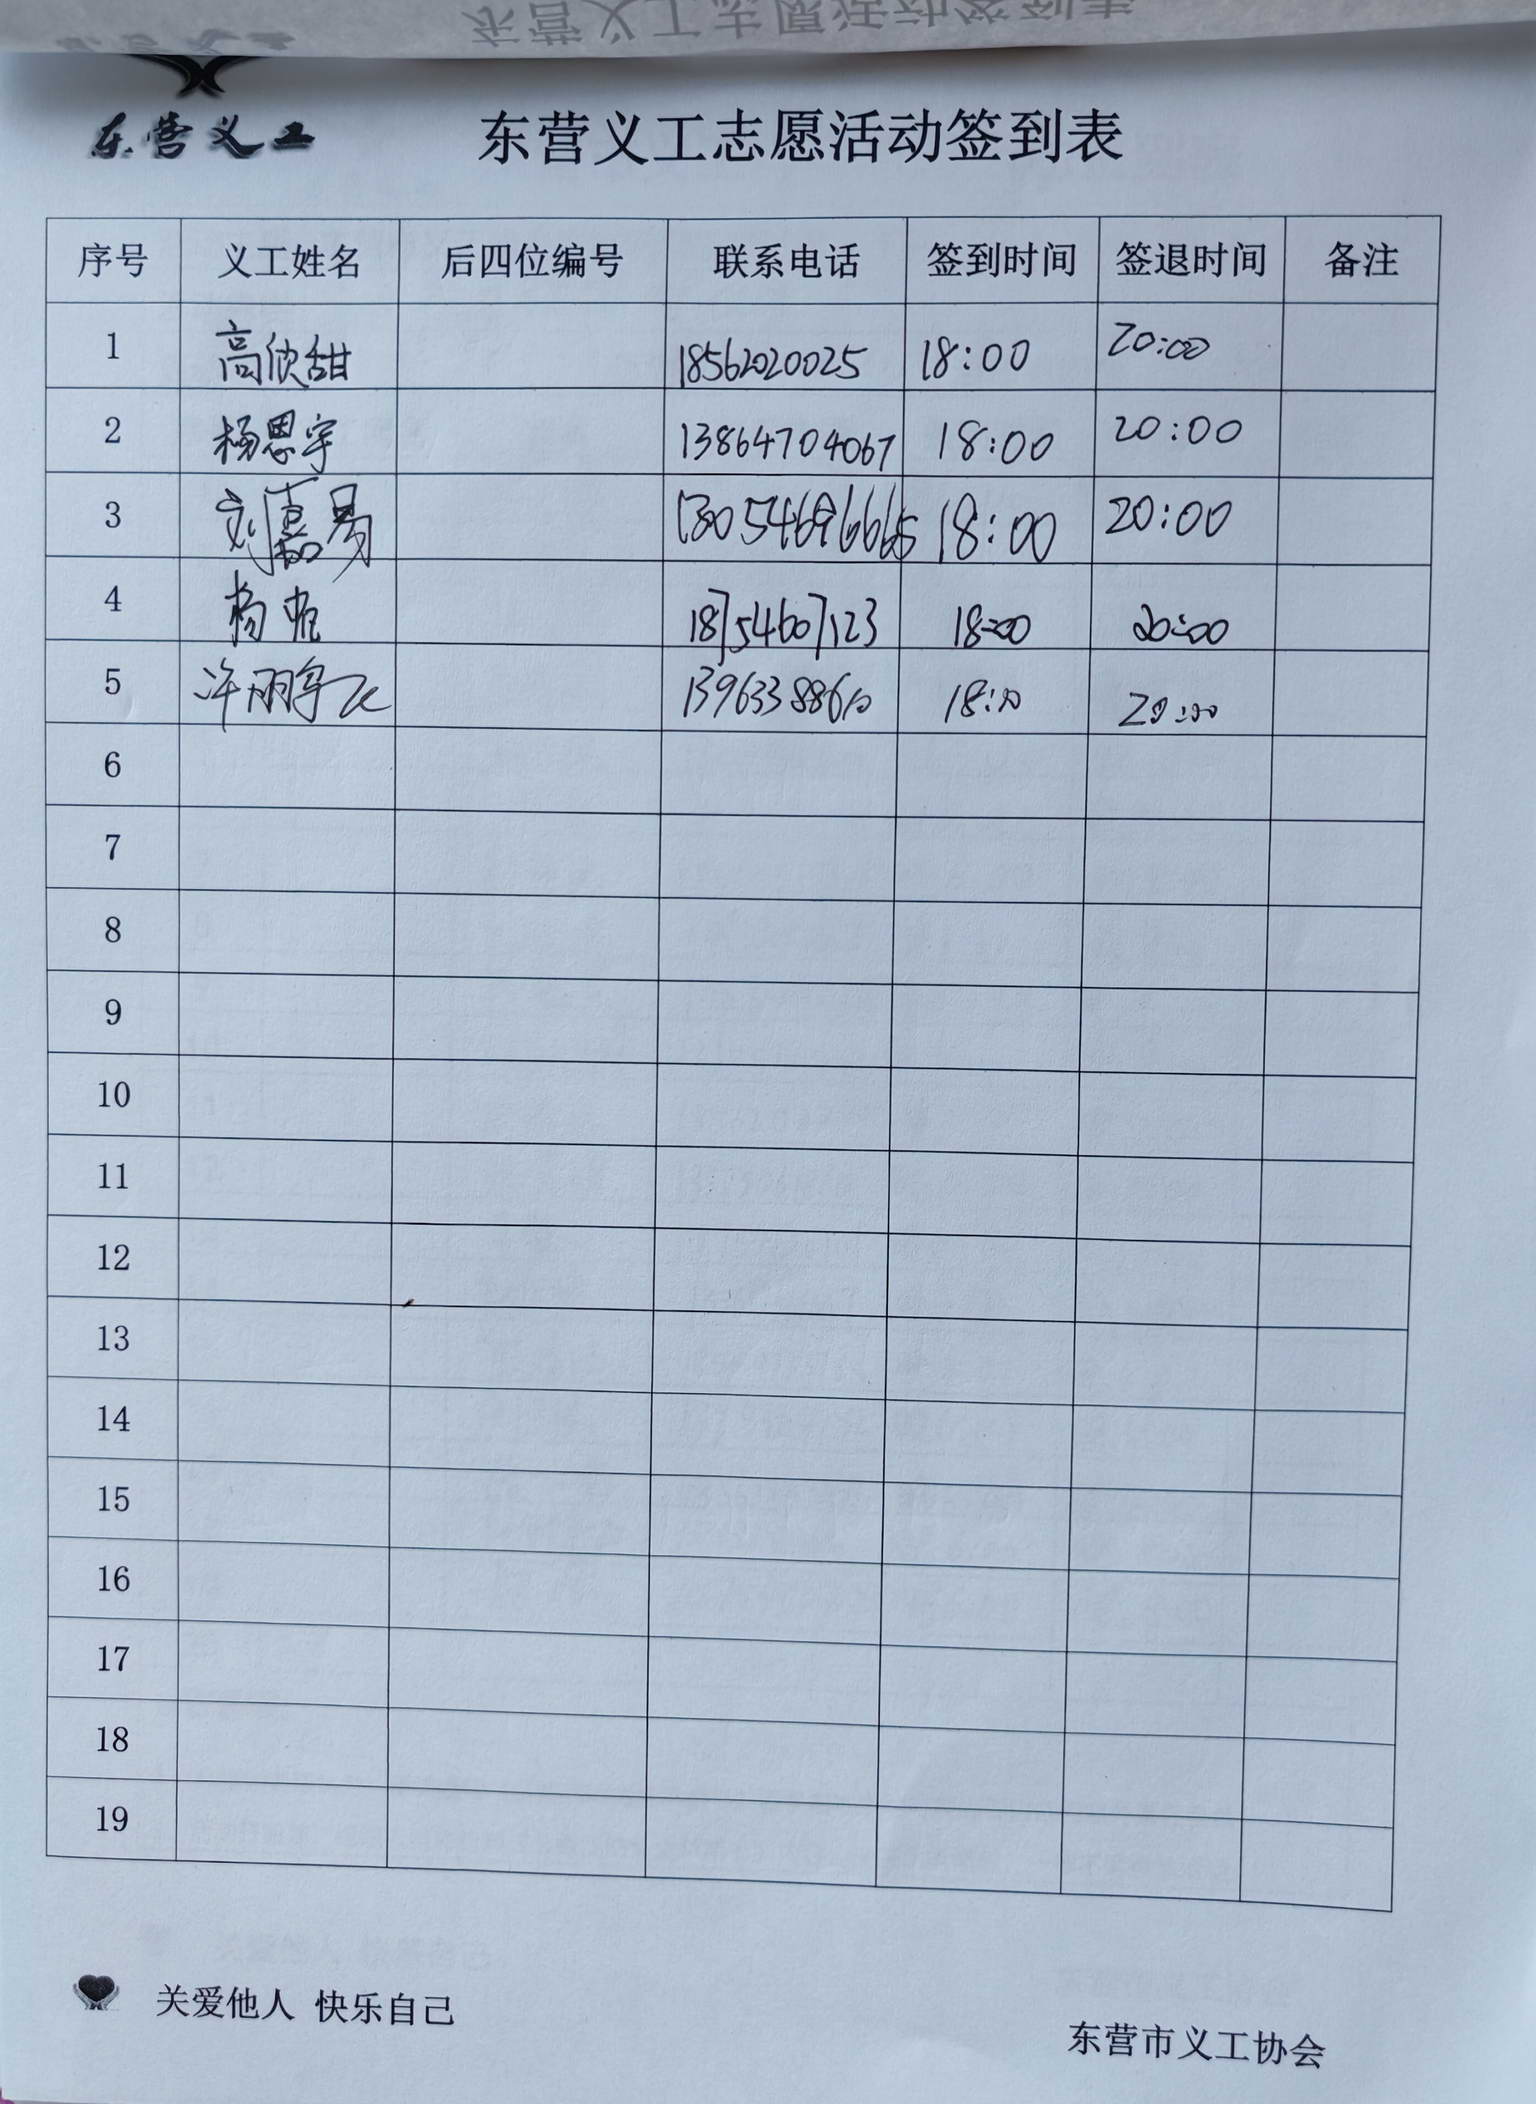 东营义工志愿活动签到表
东营义工
东营义工志愿活动签到表
序号 义工姓名 后四位编号 联系电话 签到时间 签退时间 备注
1 高欣甜 18562020025 18:00 20:00
2 杨思宇 13864704067 18:00 20:00
3 刘嘉易 18:00 20:00
4 杨 18754607123 18:00 20:00
5 许丽 18:00 20:00
6
7
8
9
10
11
12
13
14
15
16
17
18
19
关爱他人 快乐自己
东营市义工协会